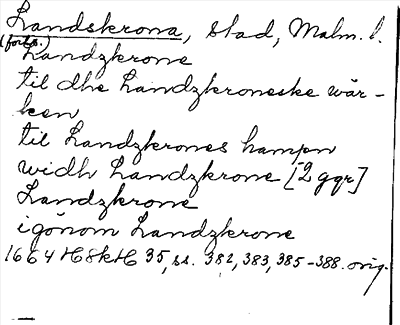 Landskrona, stad, Malm. l.
(forts.)
Landzkrone
til dhe Landzkroneske wär-
ken
til Landzkrones hampn
widh Landzkrone [2 ggr]
Landzkrone
igönom Landzkrone
1664 HSkH 35, ss. 382, 383, 385-388. orig.